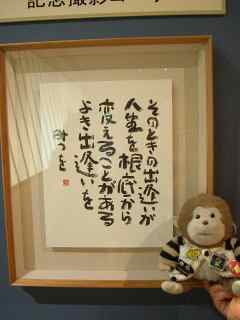 記念撮影コーナー
そのときの出逢いが
人生を根底から
変えることがある
よき出逢いを
みつを